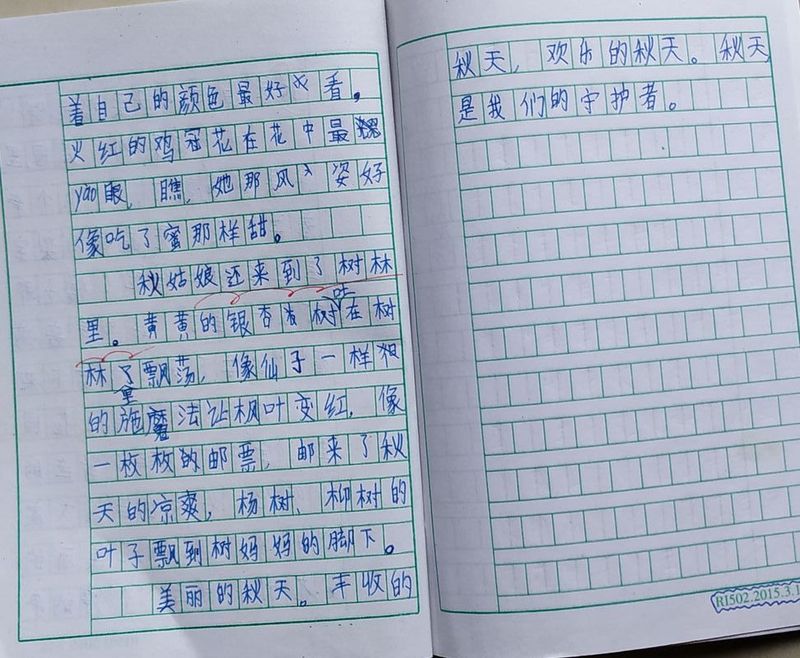 着自己的颜色最好看。
火红的鸡冠花在花中最
yào眼，瞧，她那风姿好
像吃了蜜那样甜。
秋姑娘还来到了树林
里。黄黄的银杏发叶在树
林里飘荡，像仙子一样
的施魔法让枫叶变红，像
一枚枚的邮票，邮来了秋
天的凉爽，杨树、柳树的
叶子飘到树妈妈的脚下。
美丽的秋天。丰收的
秋天，欢乐的秋天。秋天
是我们的守护者。
R1502.2015.3.1